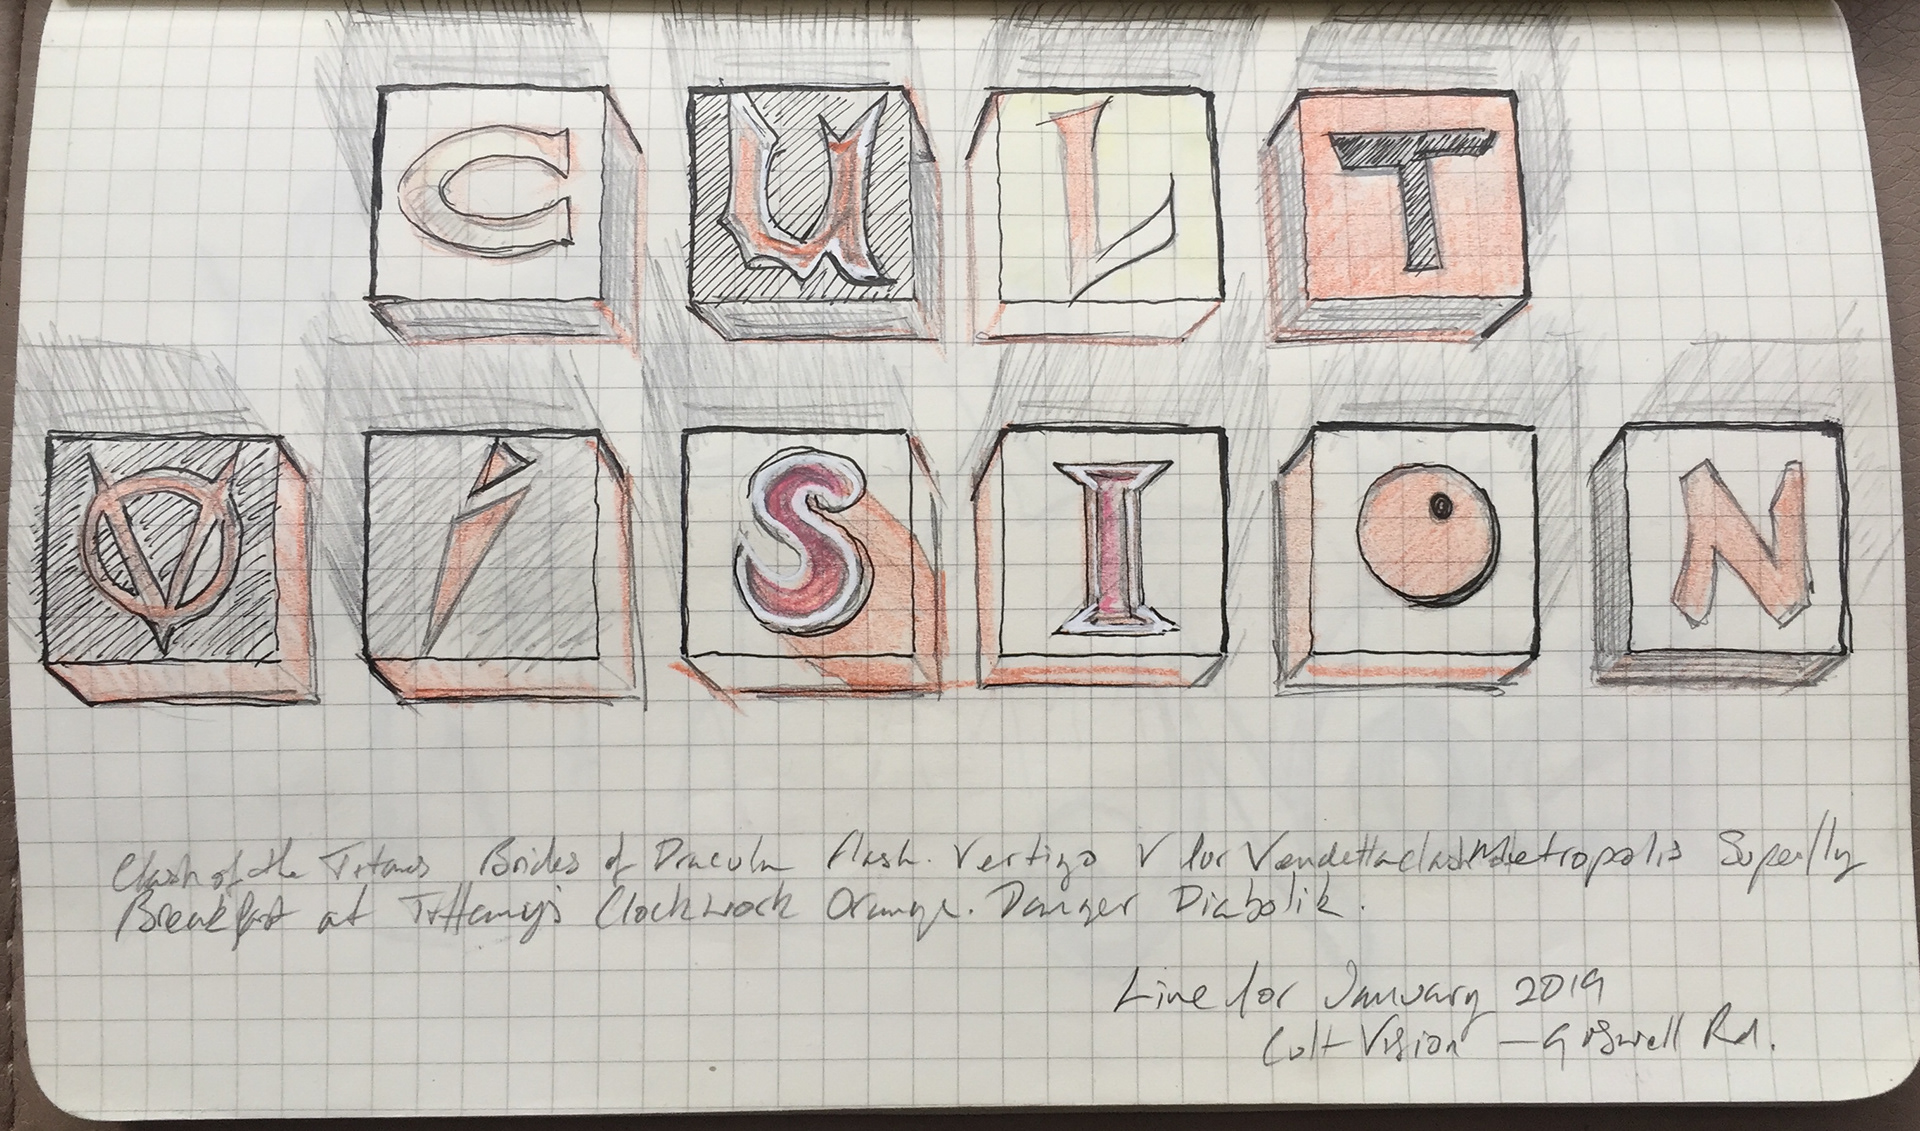 CULT
VISION
Clash of the Titans Brides of Dracula Flash. Vertigo V for Vendetta clash Metropolis Superfly
Breakfast at Tiffany's Clockwork Orange. Danger Diabolik.
Line for January 2019
Cult Vision — Goswell Rd.